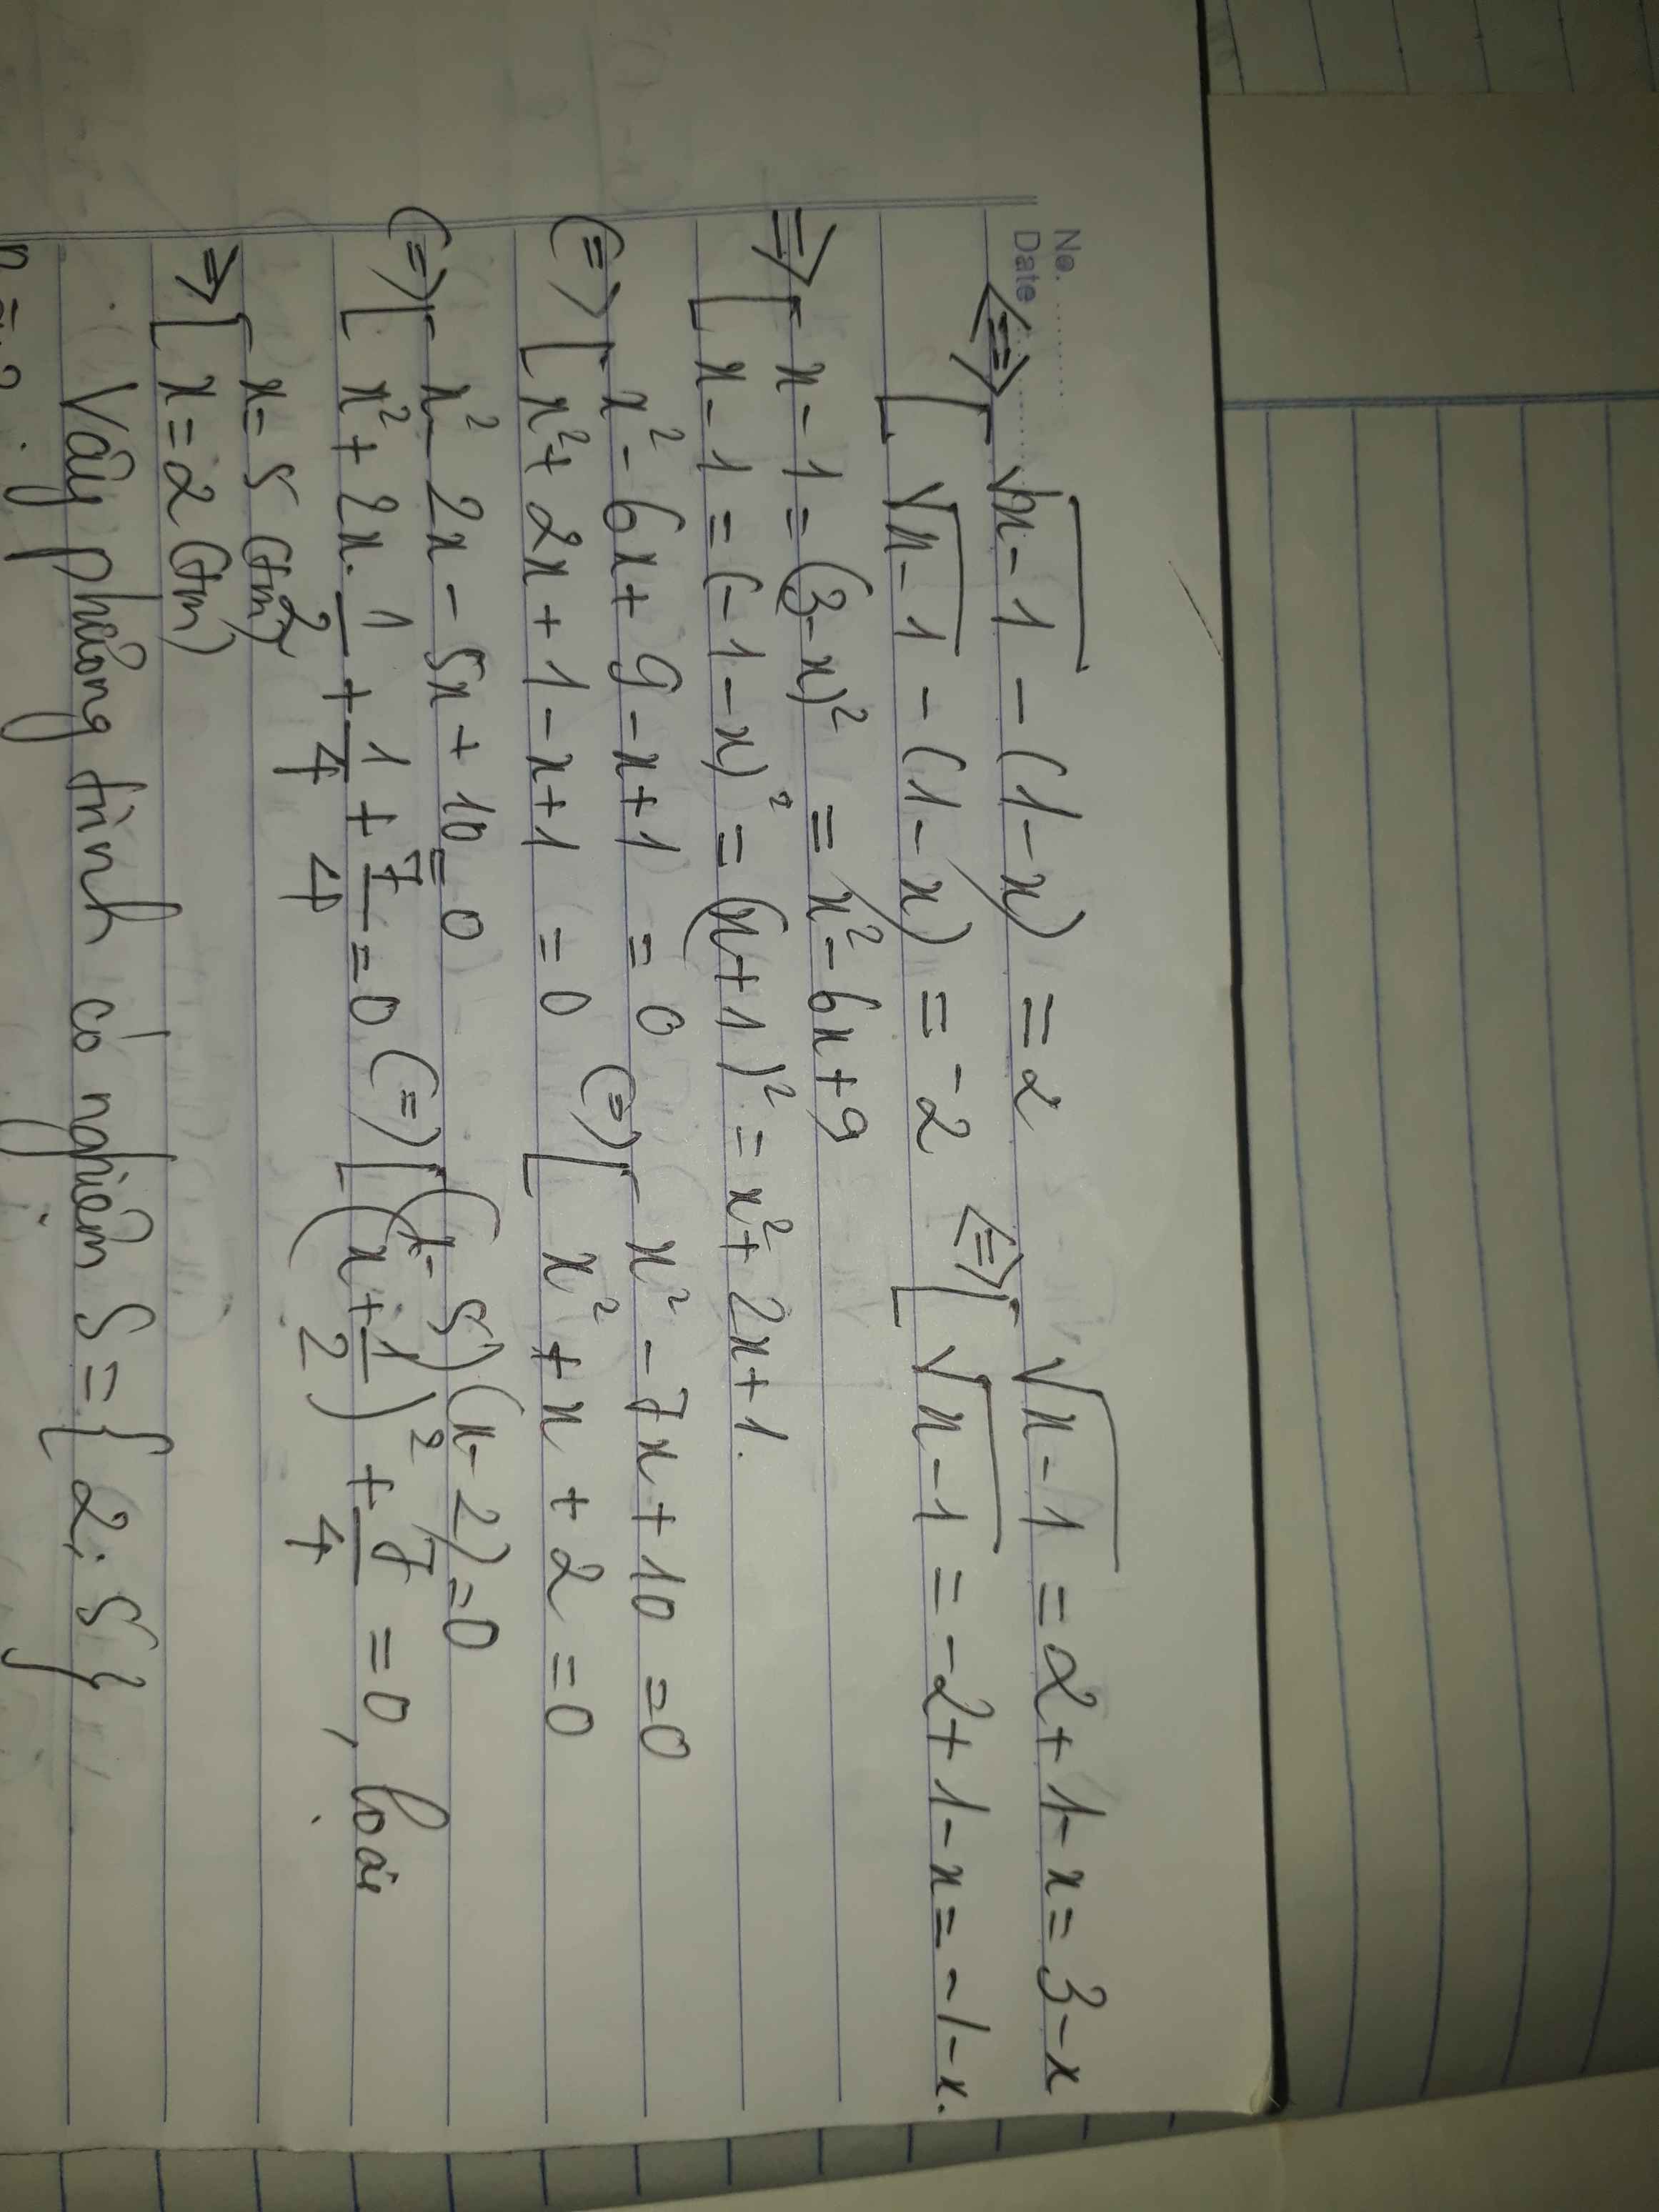 No.
Date
⟺ [ √(x-1) - (1-x) = 2
[ √(x-1) - (1-x) = -2 ⟺ [ √(x-1) = 2+1-x = 3-x
[ √(x-1) = -2+1-x = -1-x.
⇒ [ x-1 = (3-x)² = x²-6x+9
[ x-1 = (-1-x)² = (x+1)² = x²+2x+1.
(=) [ x²-6x+9-x+1 = 0
[ x²+2x+1-x+1 = 0 (=) [ x²-7x+10=0
[ x²+x+2=0
(=) [ x²-2x-5x+10=0
[ x²+2x.1/2+1/4+7/4=0 (=) [ (x-5)(x-2)=0
[ (x+1/2)²+7/4=0, loại
⇒ [ x=5 (tm)
[ x=2 (tm)
Vậy phương trình có nghiệm S={2; 5}